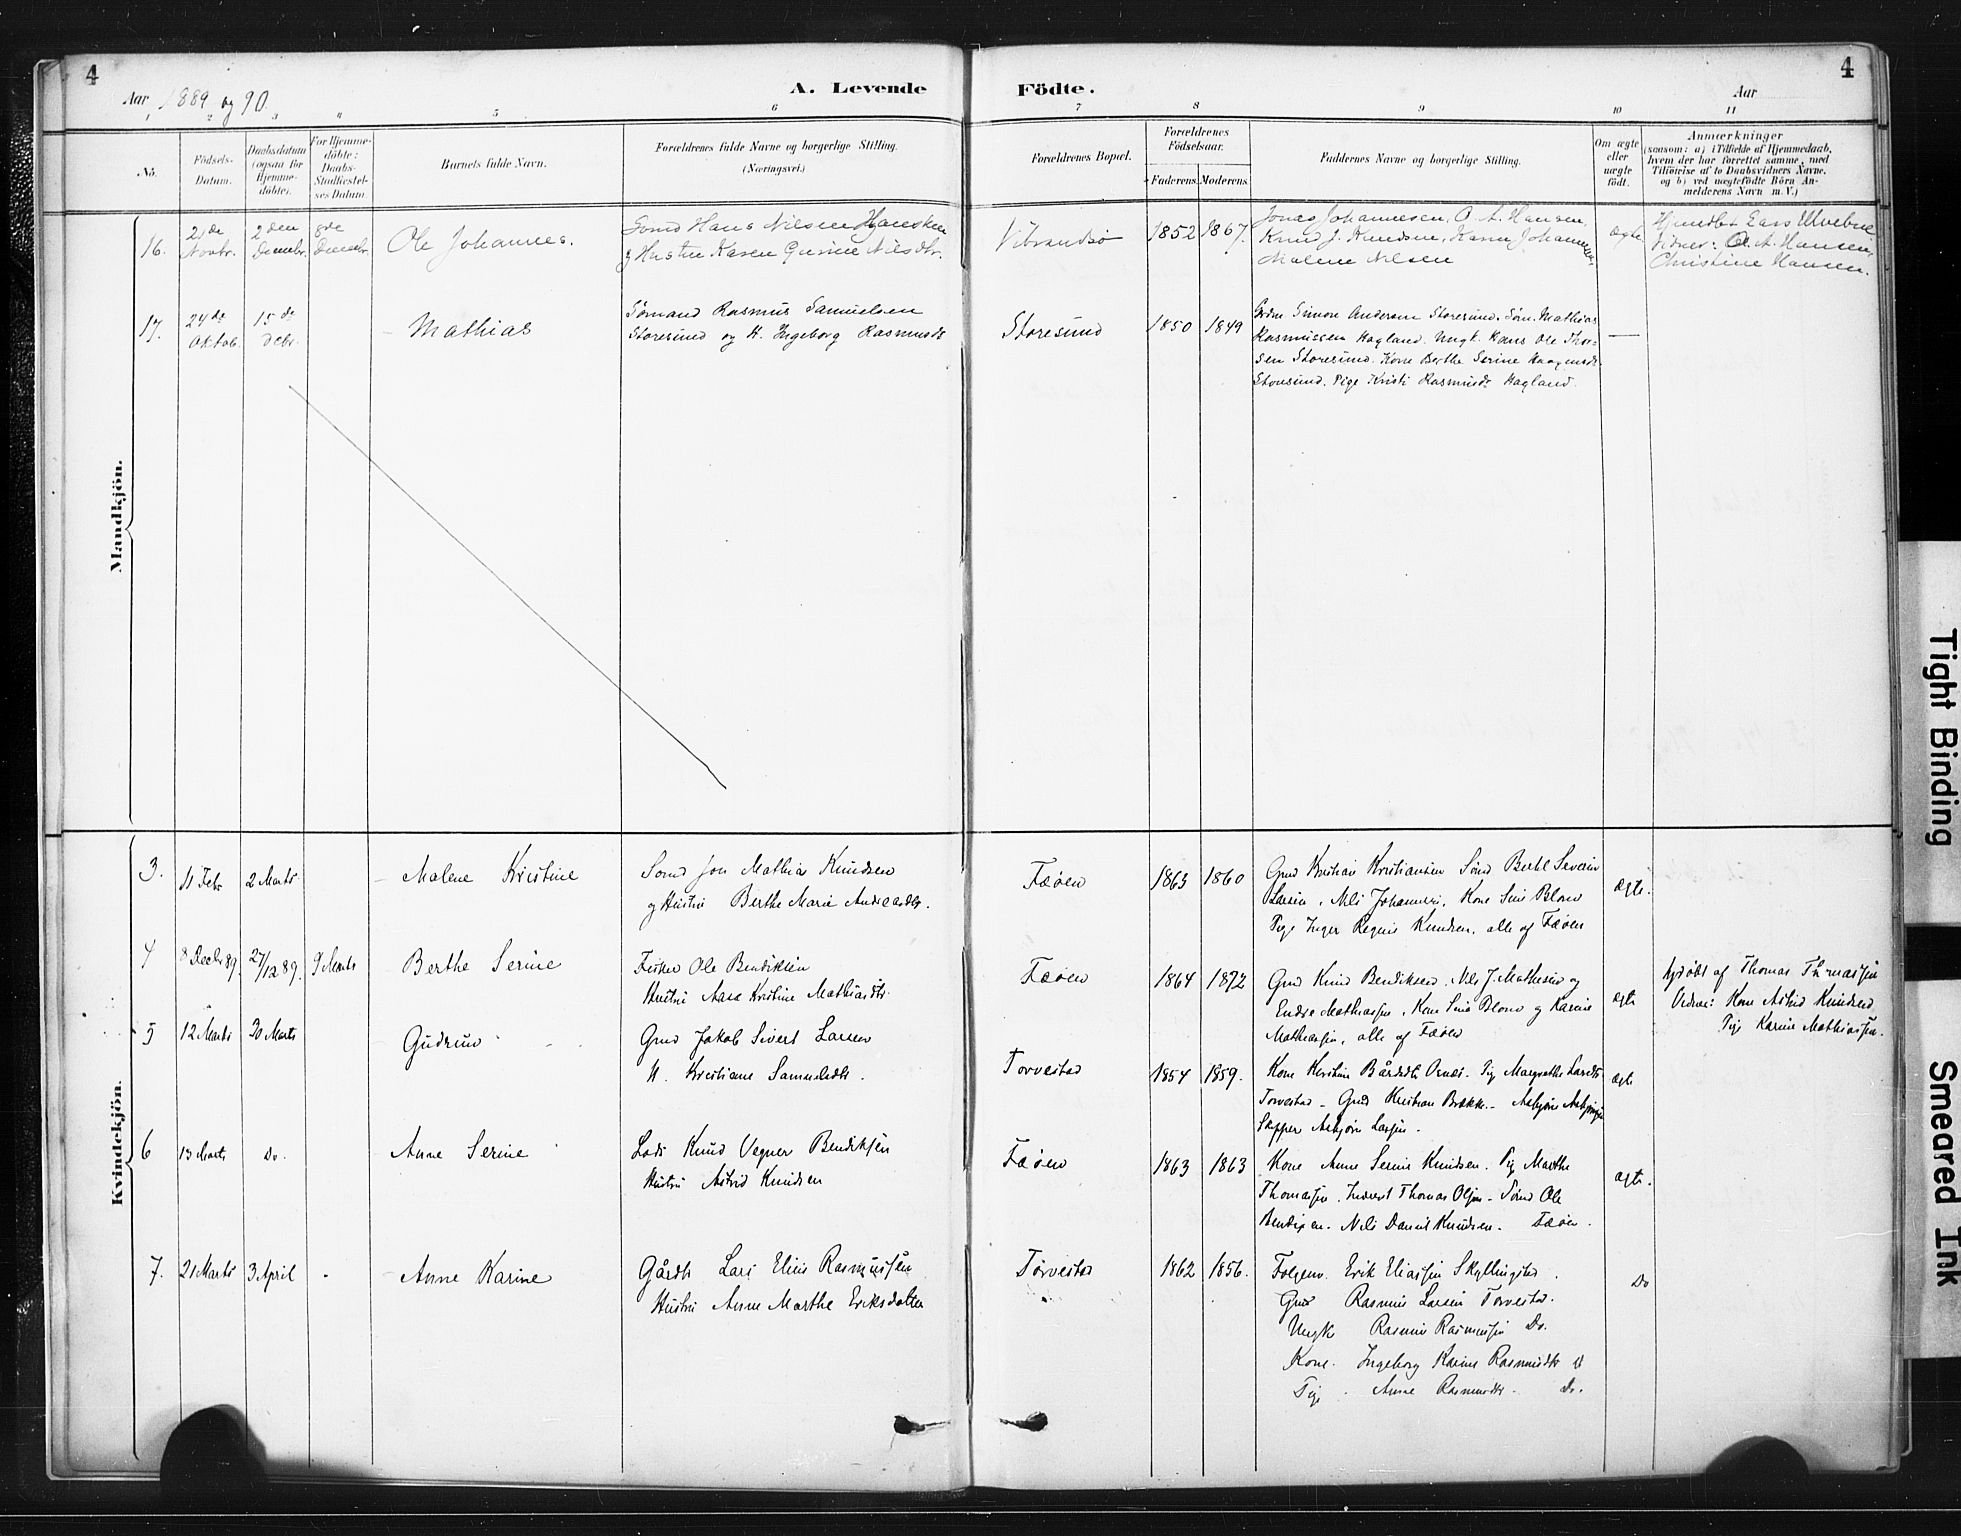 4
Aar 1889 og 90.
A. Levende
Födte.
Aar
4
1 2 3 4 5 6 7 8 9 10 11
No.
Födsels-
Datum.
Daabsdatum
(ogsaa for
Hjemme-
döbte).
For Hjemme-
döbte:
Daabs-
Stadfestel-
ses Datum.
Barnets fulde Navn.
Forældrenes fulde Navne og borgerlige Stilling.
(Næringsvei.)
Forældrenes Bopæl.
Forældrenes
Födselsaar.
Faderens. Moderens.
Faddernes Navne og borgerlige Stilling.
Om ægte
eller
uægte
födt.
Anmærkninger
(saasom: a) i Tilfælde af Hjemmedaab,
hvem der har forrettet samme, med
Tilföielse af to Daabsvidners Navne,
og b) ved uægtefödte Börn An-
melderens Navn m. V.)
Mandkjön.
16.
Novbr.
2den
Decmbr.
8de
Decmbr.
Ole Johannes.
Hans Nilsen
og Hustru Karen Gurine Nilsdtr.
Vibrandsø
1852 1867.
Jonas Johannesen, O. A. Hansen,
Knud J. Knudsen, Karen
Malene Nilsen
ægte
Vidner: O. A. Hansen,
Christine Hansen.
17.
24de
Oktob.
15de
Debr.
Mathias
Sømand Rasmus Samuelsen
Storesund og H. Ingeborg Rasmusdtr
Storesund
1850 1849
Simon Andersen Storesund. Søm. Mathias
Rasmussen Hagland. Ungk. Hans Ole Thor-
sen Storesund. Kone Berthe Serine
Storesund. Pige Kristi Rasmusdr Hagland.
—
Kvindekjön.
3.
11 Febr
2 Marts
Malene Kristine
Sømd Jon Mathias Knudsen
og Hustru Berthe Marie Andreasdtr.
Fæøen
1863 1860
Gmd Kristian Kristiansen Sømd Bertel Severin
Larsen, Nils Johannes, Kone Sine Blom
Pige Inger Regine Knudsen, alle af Fæøen
ægte.
4
8 Decbr 89.
27/12 89.
9 Marts
Berthe Serine
Fisker Ole Bendiksen
Hustru Aasa Kristine Mathiasdtr.
Fæøen
1864 1872
Gmd Knud Bendiksen, Nils J. Mathesen og
Endre Mathiassen, Kone Sine Blom og Karine
Mathiassen, alle af Fæøen
ægte
hjdøbt af Thomas Thomassen
Vidner: Kone Astrid Knudsen
Pige Karine Mathiassen.
5
12 Marts
30 Marts
Gudrun
Gmd Jakob Sivert Larsen
H. Kristiane Samueldtr.
Torvestad
1854 1859.
Kone Kristine Bårdsdtr Osnes. Pig Margrethe Larsdtr
Torvestad – Gmd Kristian Brække –
Skipper Asbjørn Larsen.
ægte
6
13 Marts
Do.
Anne Serine
Lods Knud Vegner Bendiksen
Hustru Astrid Knudsen
Fæøen
1863 1863
Kone Anne Serine Knudsen. Pig Marthe
Thomassen. Inderst Thomas Olsen – Sømd Ole
Bendixen. Nils Daniel Knudsen. Fæøen.
ægte.
7.
21 Marts
3 April
Anne Karine
Gårdb Lars Elias Rasmussen
Hustru Anne Marthe Eriksdatter
Torvestad
1862 1856.
Folgem. Erik Eliassen Skyllingstad.
Gmd Rasmus Larsen Torvestad.
Ungk Rasmus Rasmussen Do.
Kone. Ingeborg Karine Rasmusdtr D
Pige. Anne Rasmusdtr. Do.
Do
Tight Binding
Smeared Ink